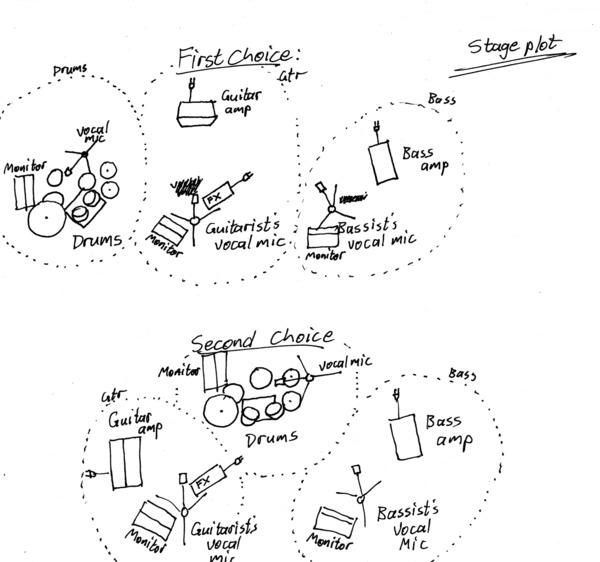 Stage plot
First Choice:
Drums
Gtr
Bass
Guitar
amp
vocal
mic
Monitor
Bass
amp
FX
Drums
Guitarist's
vocal mic
Monitor
Bassist's
vocal mic
Monitor
Second Choice
Monitor
vocal mic
Drums
Gtr
Guitar
amp
Bass
Bass
amp
FX
Monitor
Guitarist's
vocal
mic
Monitor
Bassist's
Vocal
Mic